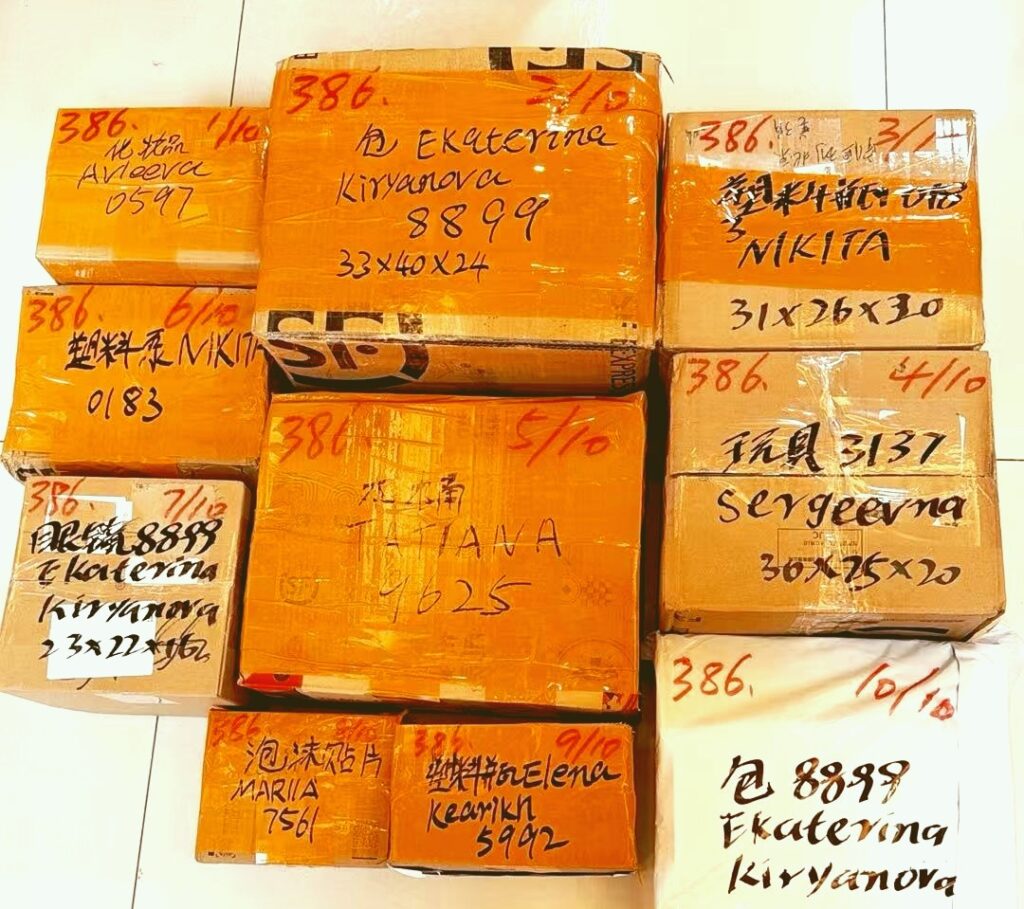 386. 1/10
化妆品
Avleeva
0597
386. 2/10
包 Ekaterina
Kiryanova
8899
33×40×24
386. 3/1
塑料瓶
NIKITA
31×26×30
386. 4/10
玩具 3137
Sergeevna
30×25×20
386. 5/10
TATIANA
9625
386. 6/10
塑料泵 NIKITA
0183
SF
EXPRE
386. 7/10
眼镜 8899
Ekaterina
Kiryanova
23×22×
386 8/10
泡沫贴片
MARIIA
7561
386. 9/10
塑料瓶 Elena
Kearikh
5992
386. 10/10
包 8899
Ekaterina
Kiryanova